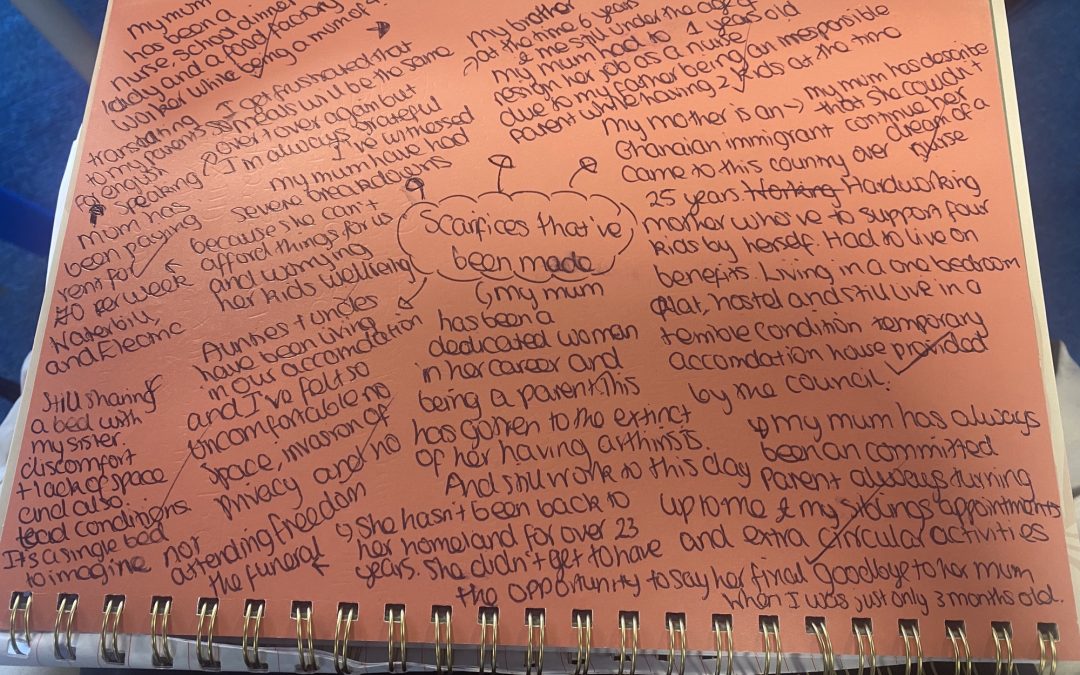 my mum
has been a
nurse, school dinner
lady and a food factory
worker while being a mum of 4.
I get frustrated that
meals will be the same
over + over again but
I'm always grateful
translating
to my parents
english
speaking
I've witnessed
my mum have had
severe breakdowns
because she can't
afford things for us
and worrying
her kids wellbeing
mum has
been paying
rent for
70 per week
Water bill,
and Electric
Aunties + uncles
have been living
in our accomdation
and I've felt so
uncomfortable no
space, invasion of
privacy and no
freedom
Still sharing
a bed with
my sister.
discomfort
+ lack of space
and also
lead condinions.
It's a single bed
to imagine
not
attending
the funeral
my brother
at the time 6 years
& me still under the age of
my mum had to 1 years old
resign her job as a nurse
due to my father being an irresponsible
parent while having 2 kids at the time
Scarifices that've
been made
my mum
has been a
dedicated women
in her career and
being a parent. This
has gotten to the extinct
of her having arthirists
And still work to this day
she hasn't been back to
her homeland for over 23
years. She didn't get to have
the opportunity to say her final goodbye to her mum
when I was just only 3 months old.
my mother is an
Ghanaian immigrant
came to this country over
25 years. Working Hardworking
mother who've to support four
kids by herself. Had to live on
benefits. Living in a one bedroom
flat, hostel and still live in a
terrible condition temporary
accomdation house provided
by the council.
my mum has describe
that she couldn't
continue her
dream of a
nurse
my mum has always
been an committed
parent always turning
up to me & my siblings appointments
and extra circular activities